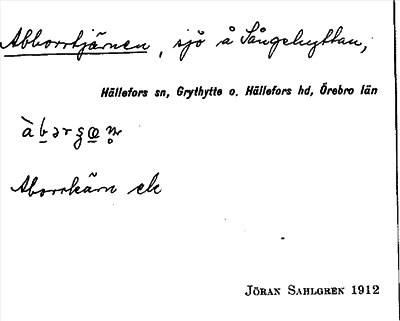 Abborrtjärnen, sjö å Sångehyttan,
Hällefors sn, Grythytte o. Hällefors hd, Örebro län
Aborrkärn ek
JÖRAN SAHLGREN 1912